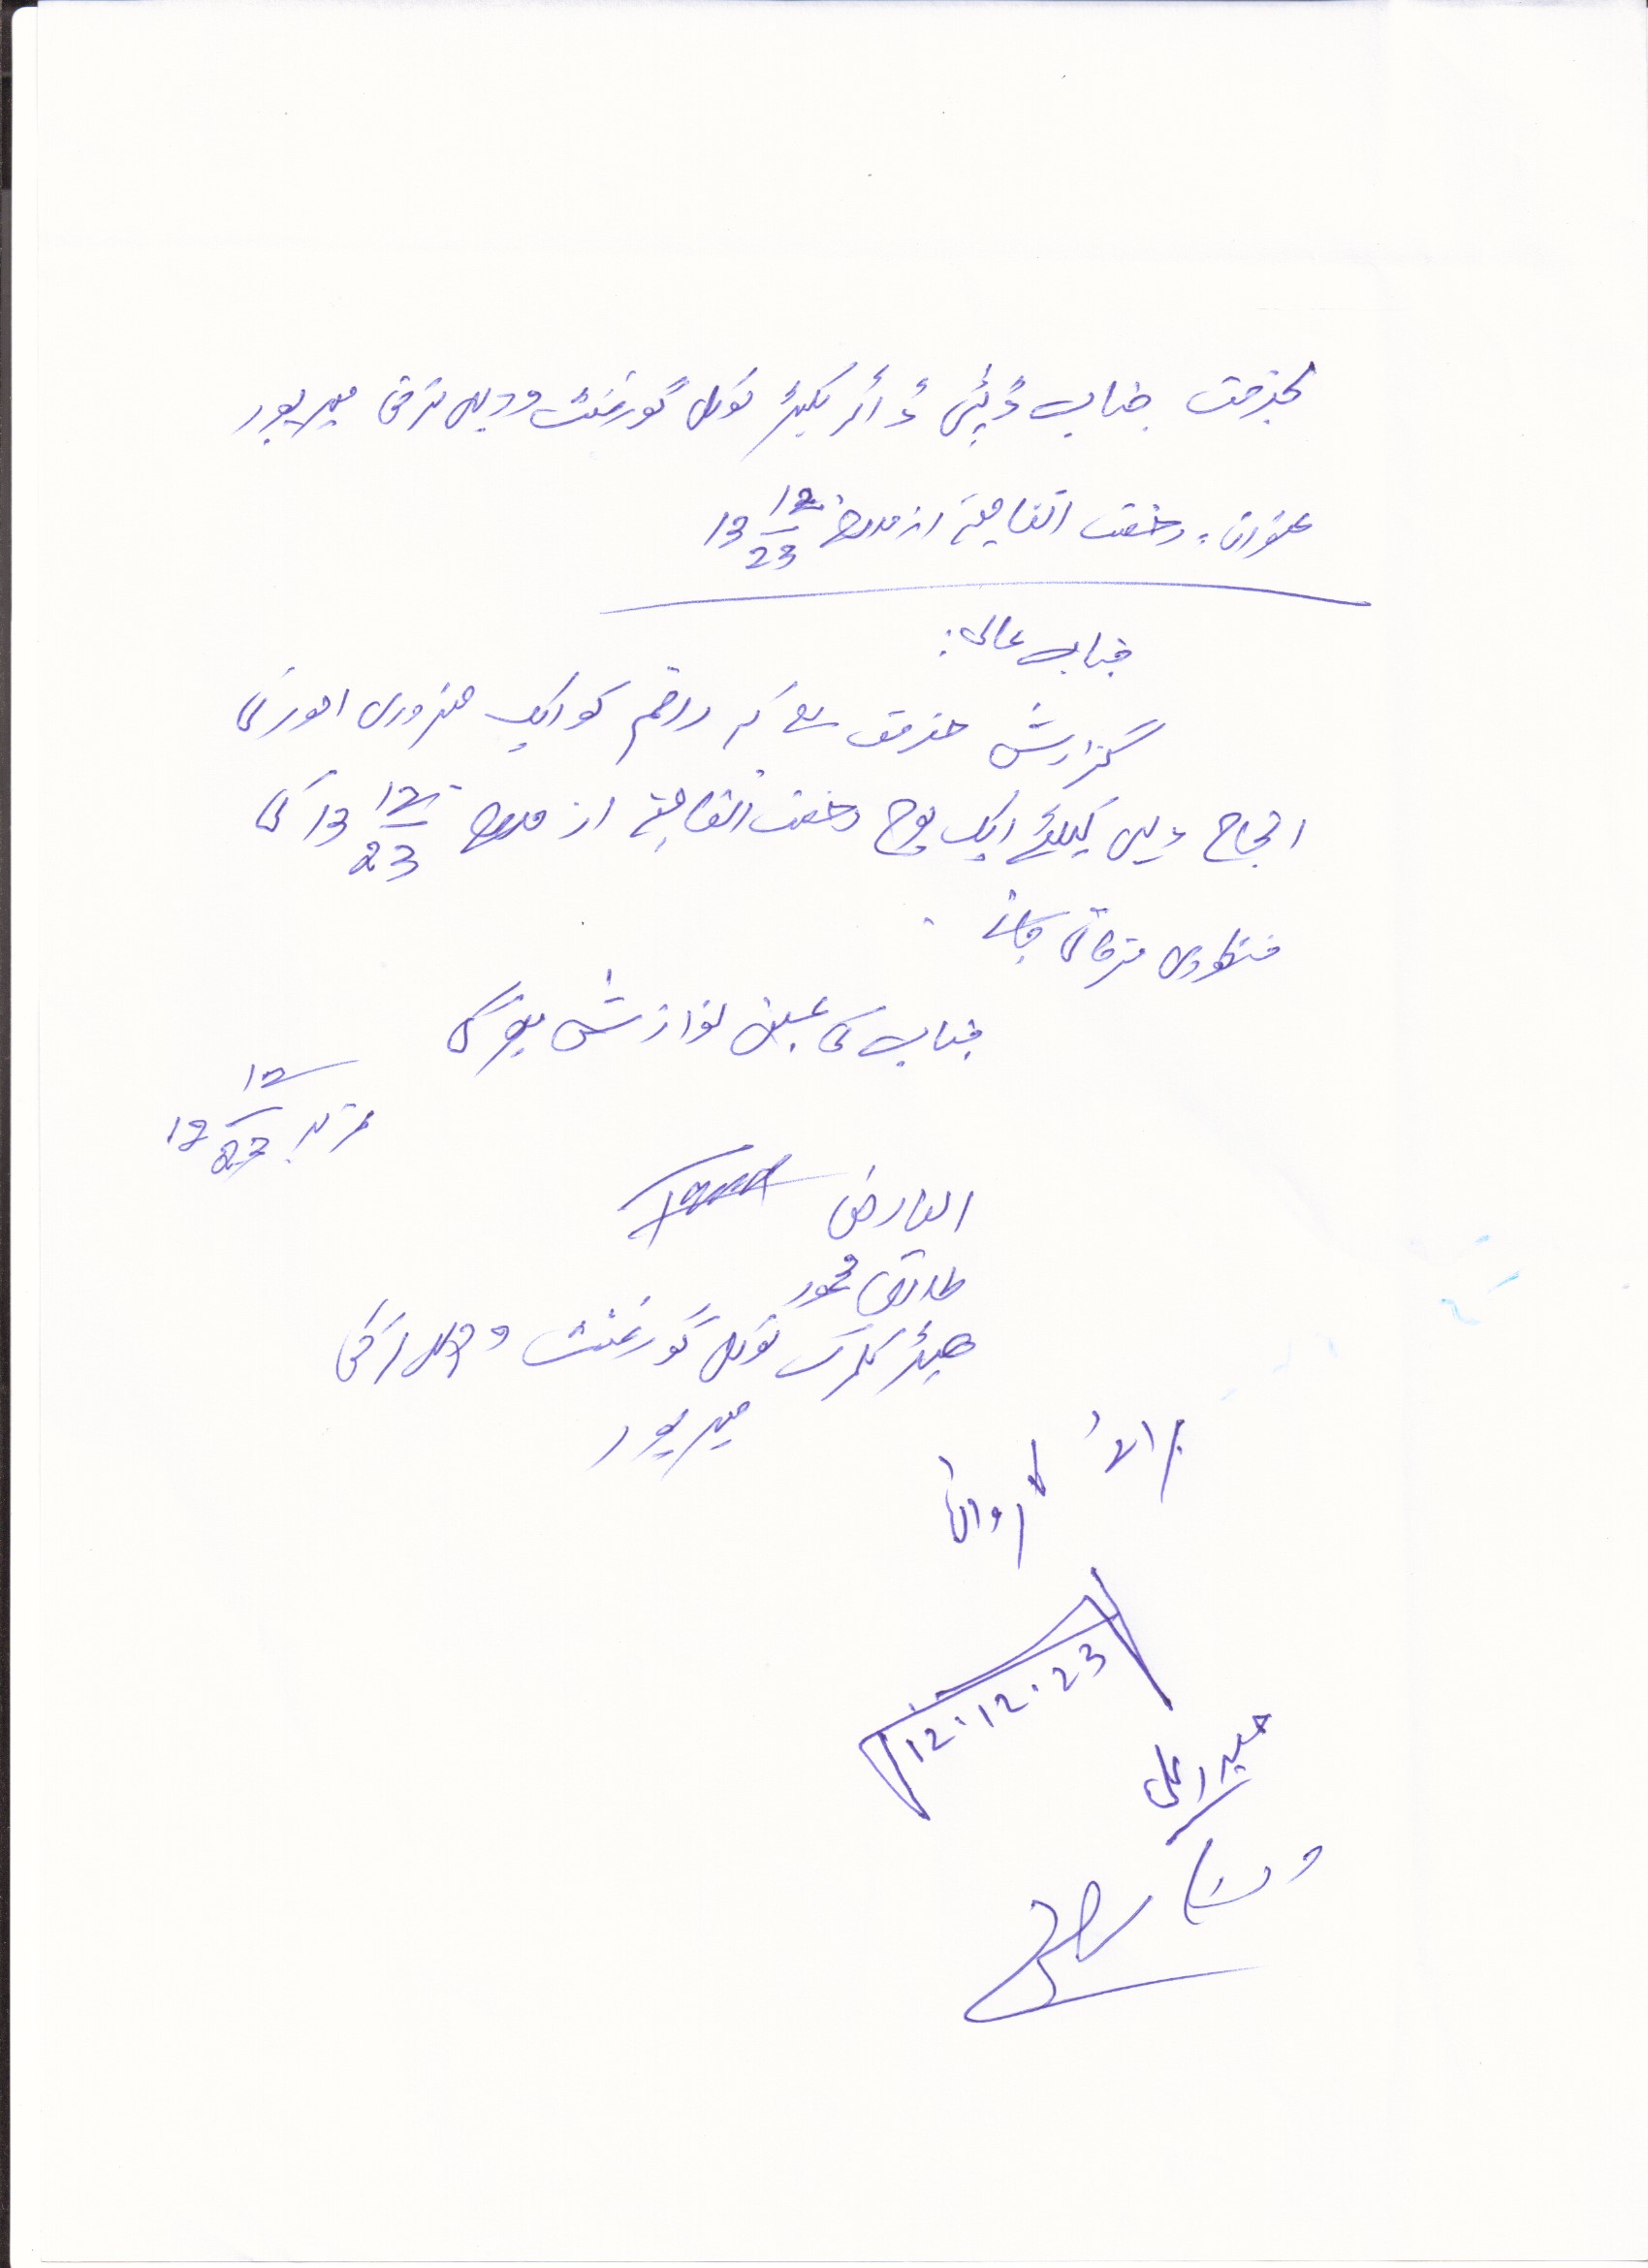 بخدمت جناب ڈپٹی ڈائریکٹر لوکل گورنمنٹ و دیہی ترقی میرپور
عنوان: رخصت اتفاقیہ از مورخہ 13/12/23
جناب عالی:
گزارش خدمت ہے کہ راقم کو ایک ضروری امور کی
انجام دہی کیلئے ایک یوم رخصت اتفاقیہ از مورخہ 13/12/23 کی
منظوری فرمائی جائے
جناب کی عین نوازش ہو گی
تحریر 12/12/23
العارض
طارق محمود
ہیڈ کلرک لوکل گورنمنٹ و دیہی ترقی
میرپور
برائے کاروائی
12.12.23